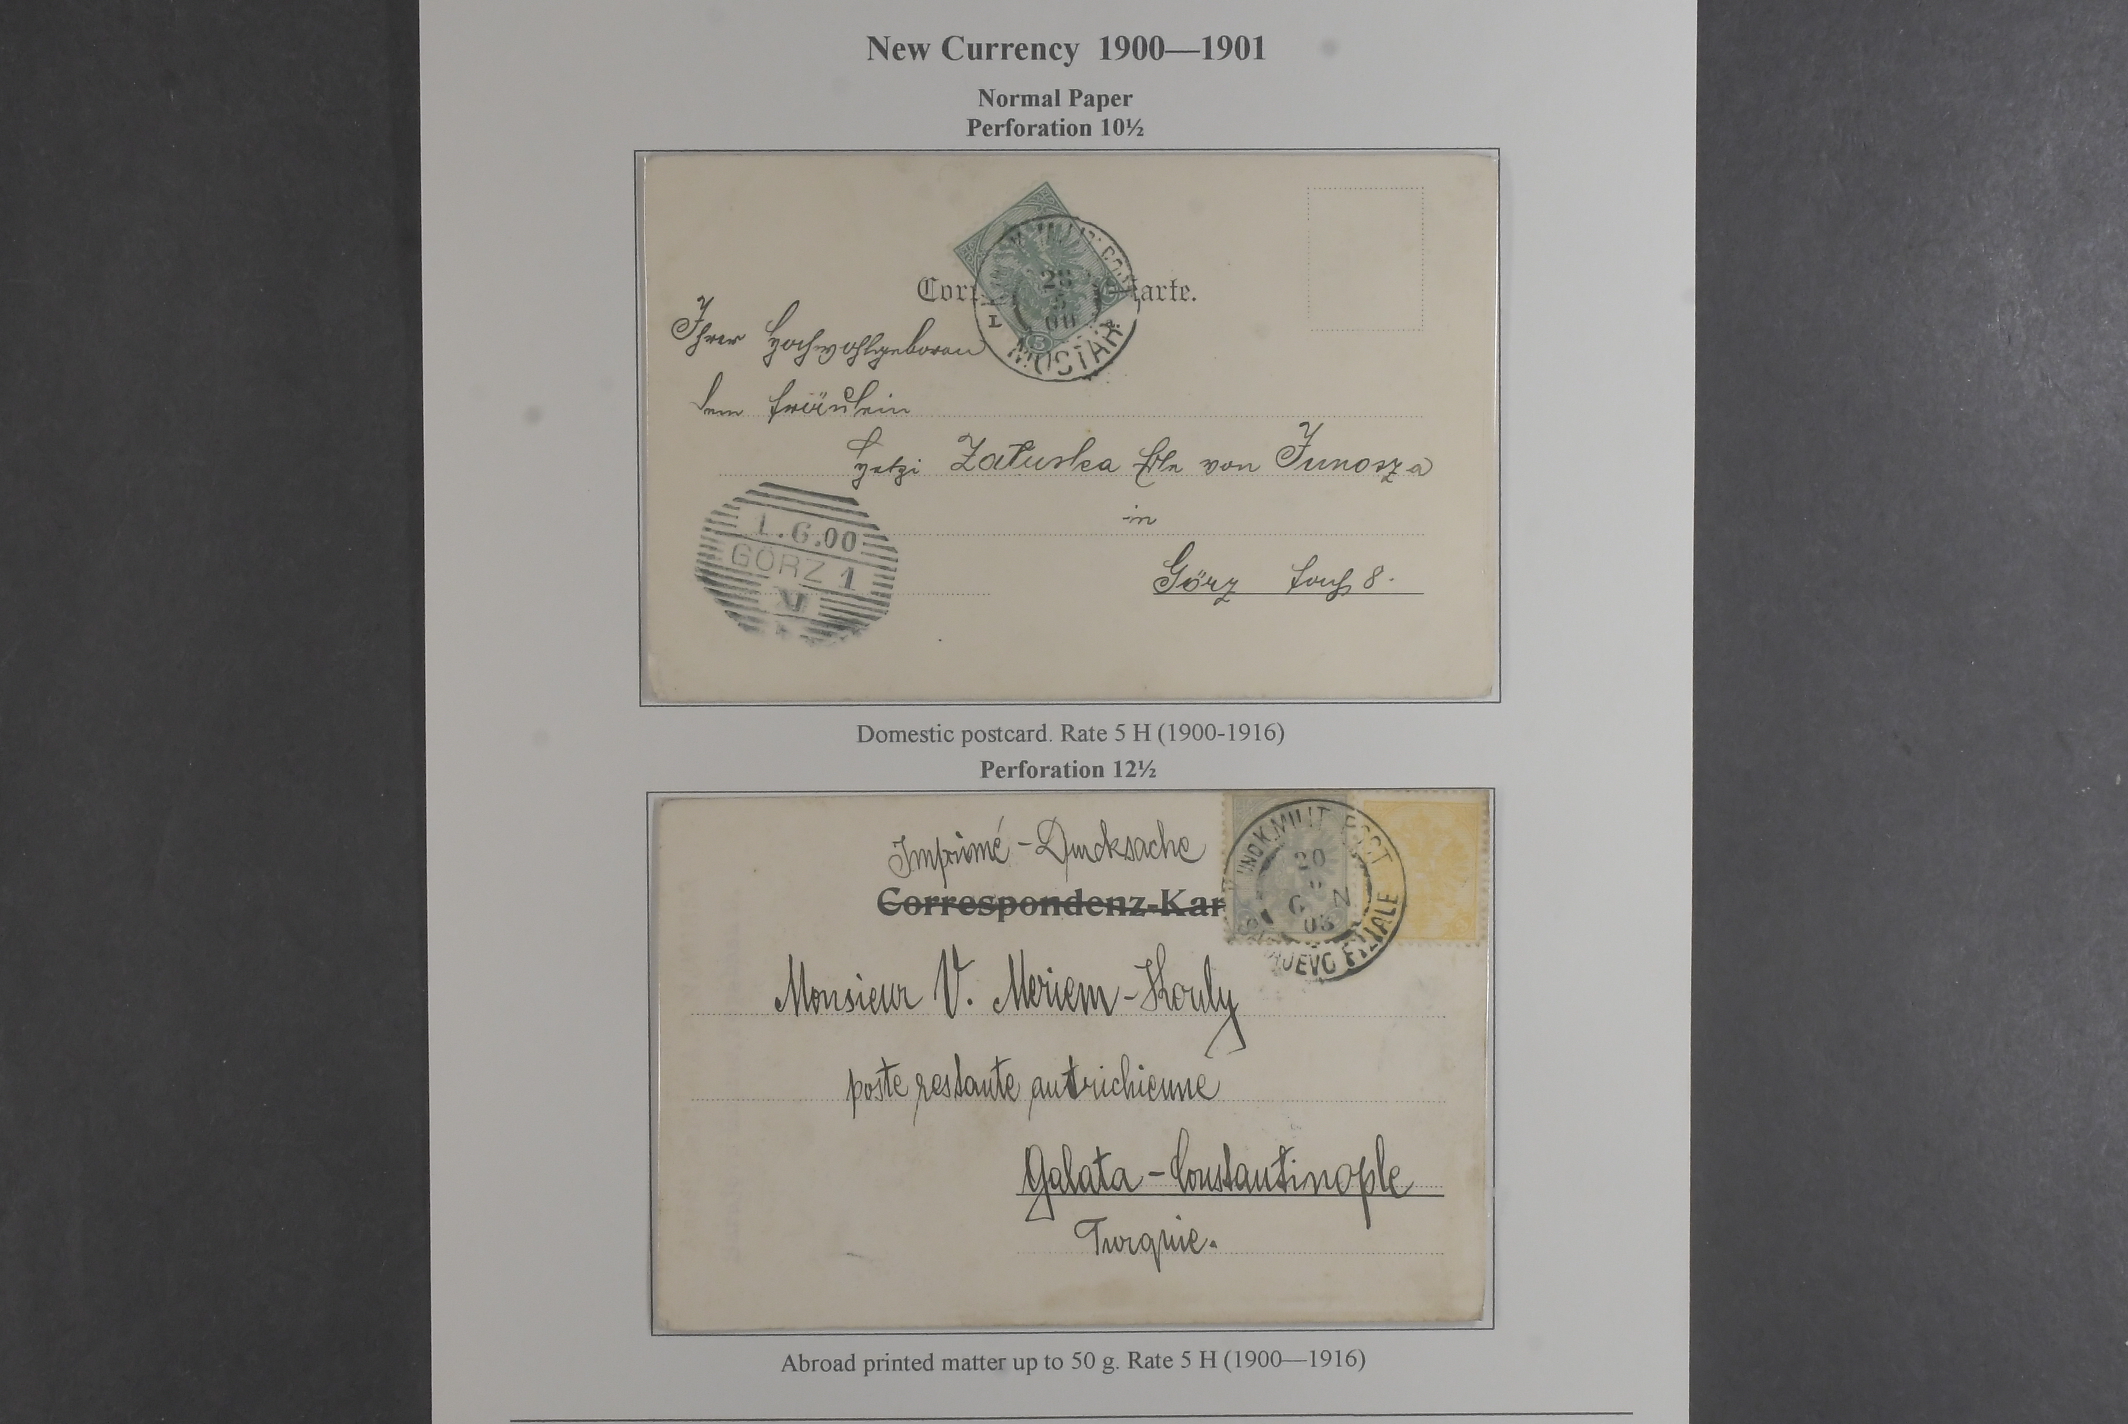 New Currency 1900—1901
Normal Paper
Perforation 10½
K. u. K. MILIT. POST
I
28
5
00
MOSTAR
5
5
Ihrer Hochwohlgeboren
dem Fräulein
Załuska Edle von Junosza
in
Görz Fach 8.
1.6.00
GÖRZ 1
XI
Domestic postcard. Rate 5 H (1900-1916)
Perforation 12½
Imprimé - Drucksache
Correspondenz-Kar
MILIT. POST
20
03
FILIALE
Monsieur V. Meriem-Kouly
poste restante autrichienne
Galata - Constantinople
Turquie.
Abroad printed matter up to 50 g. Rate 5 H (1900—1916)